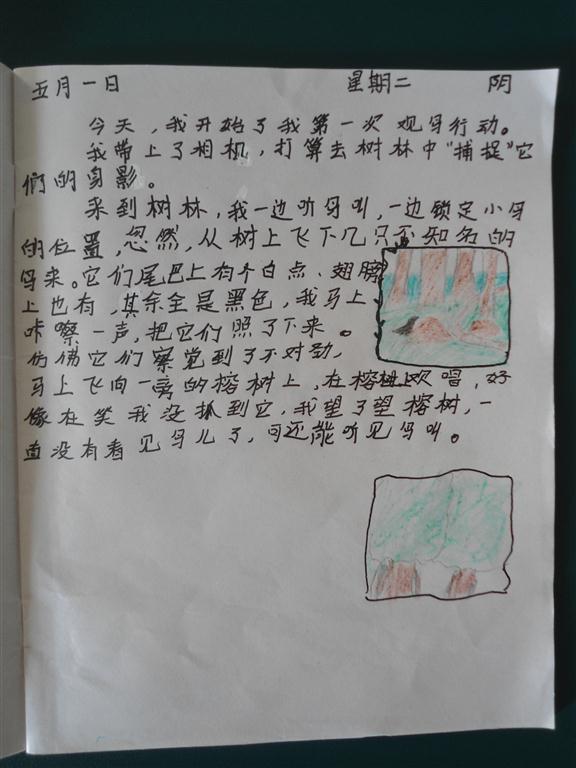 五月一日 星期二 阴
今天，我开始了我第一次观鸟行动。
我带上了相机，打算去树林中“捕捉”它
们的身影。
来到树林，我一边听鸟叫，一边锁定小鸟
的位置，忽然，从树上飞下几只不知名的
鸟来。它们尾巴上有个白点、翅膀
上也有，其余全是黑色，我马上
咔嚓一声，把它们照了下来。
仿佛它们察觉到了不对劲，
马上飞向一旁的榕树上，在榕树上欢唱，好
像在笑我没抓到它，我望了望榕树，一
直没有看见鸟儿了，可还能听见鸟叫。